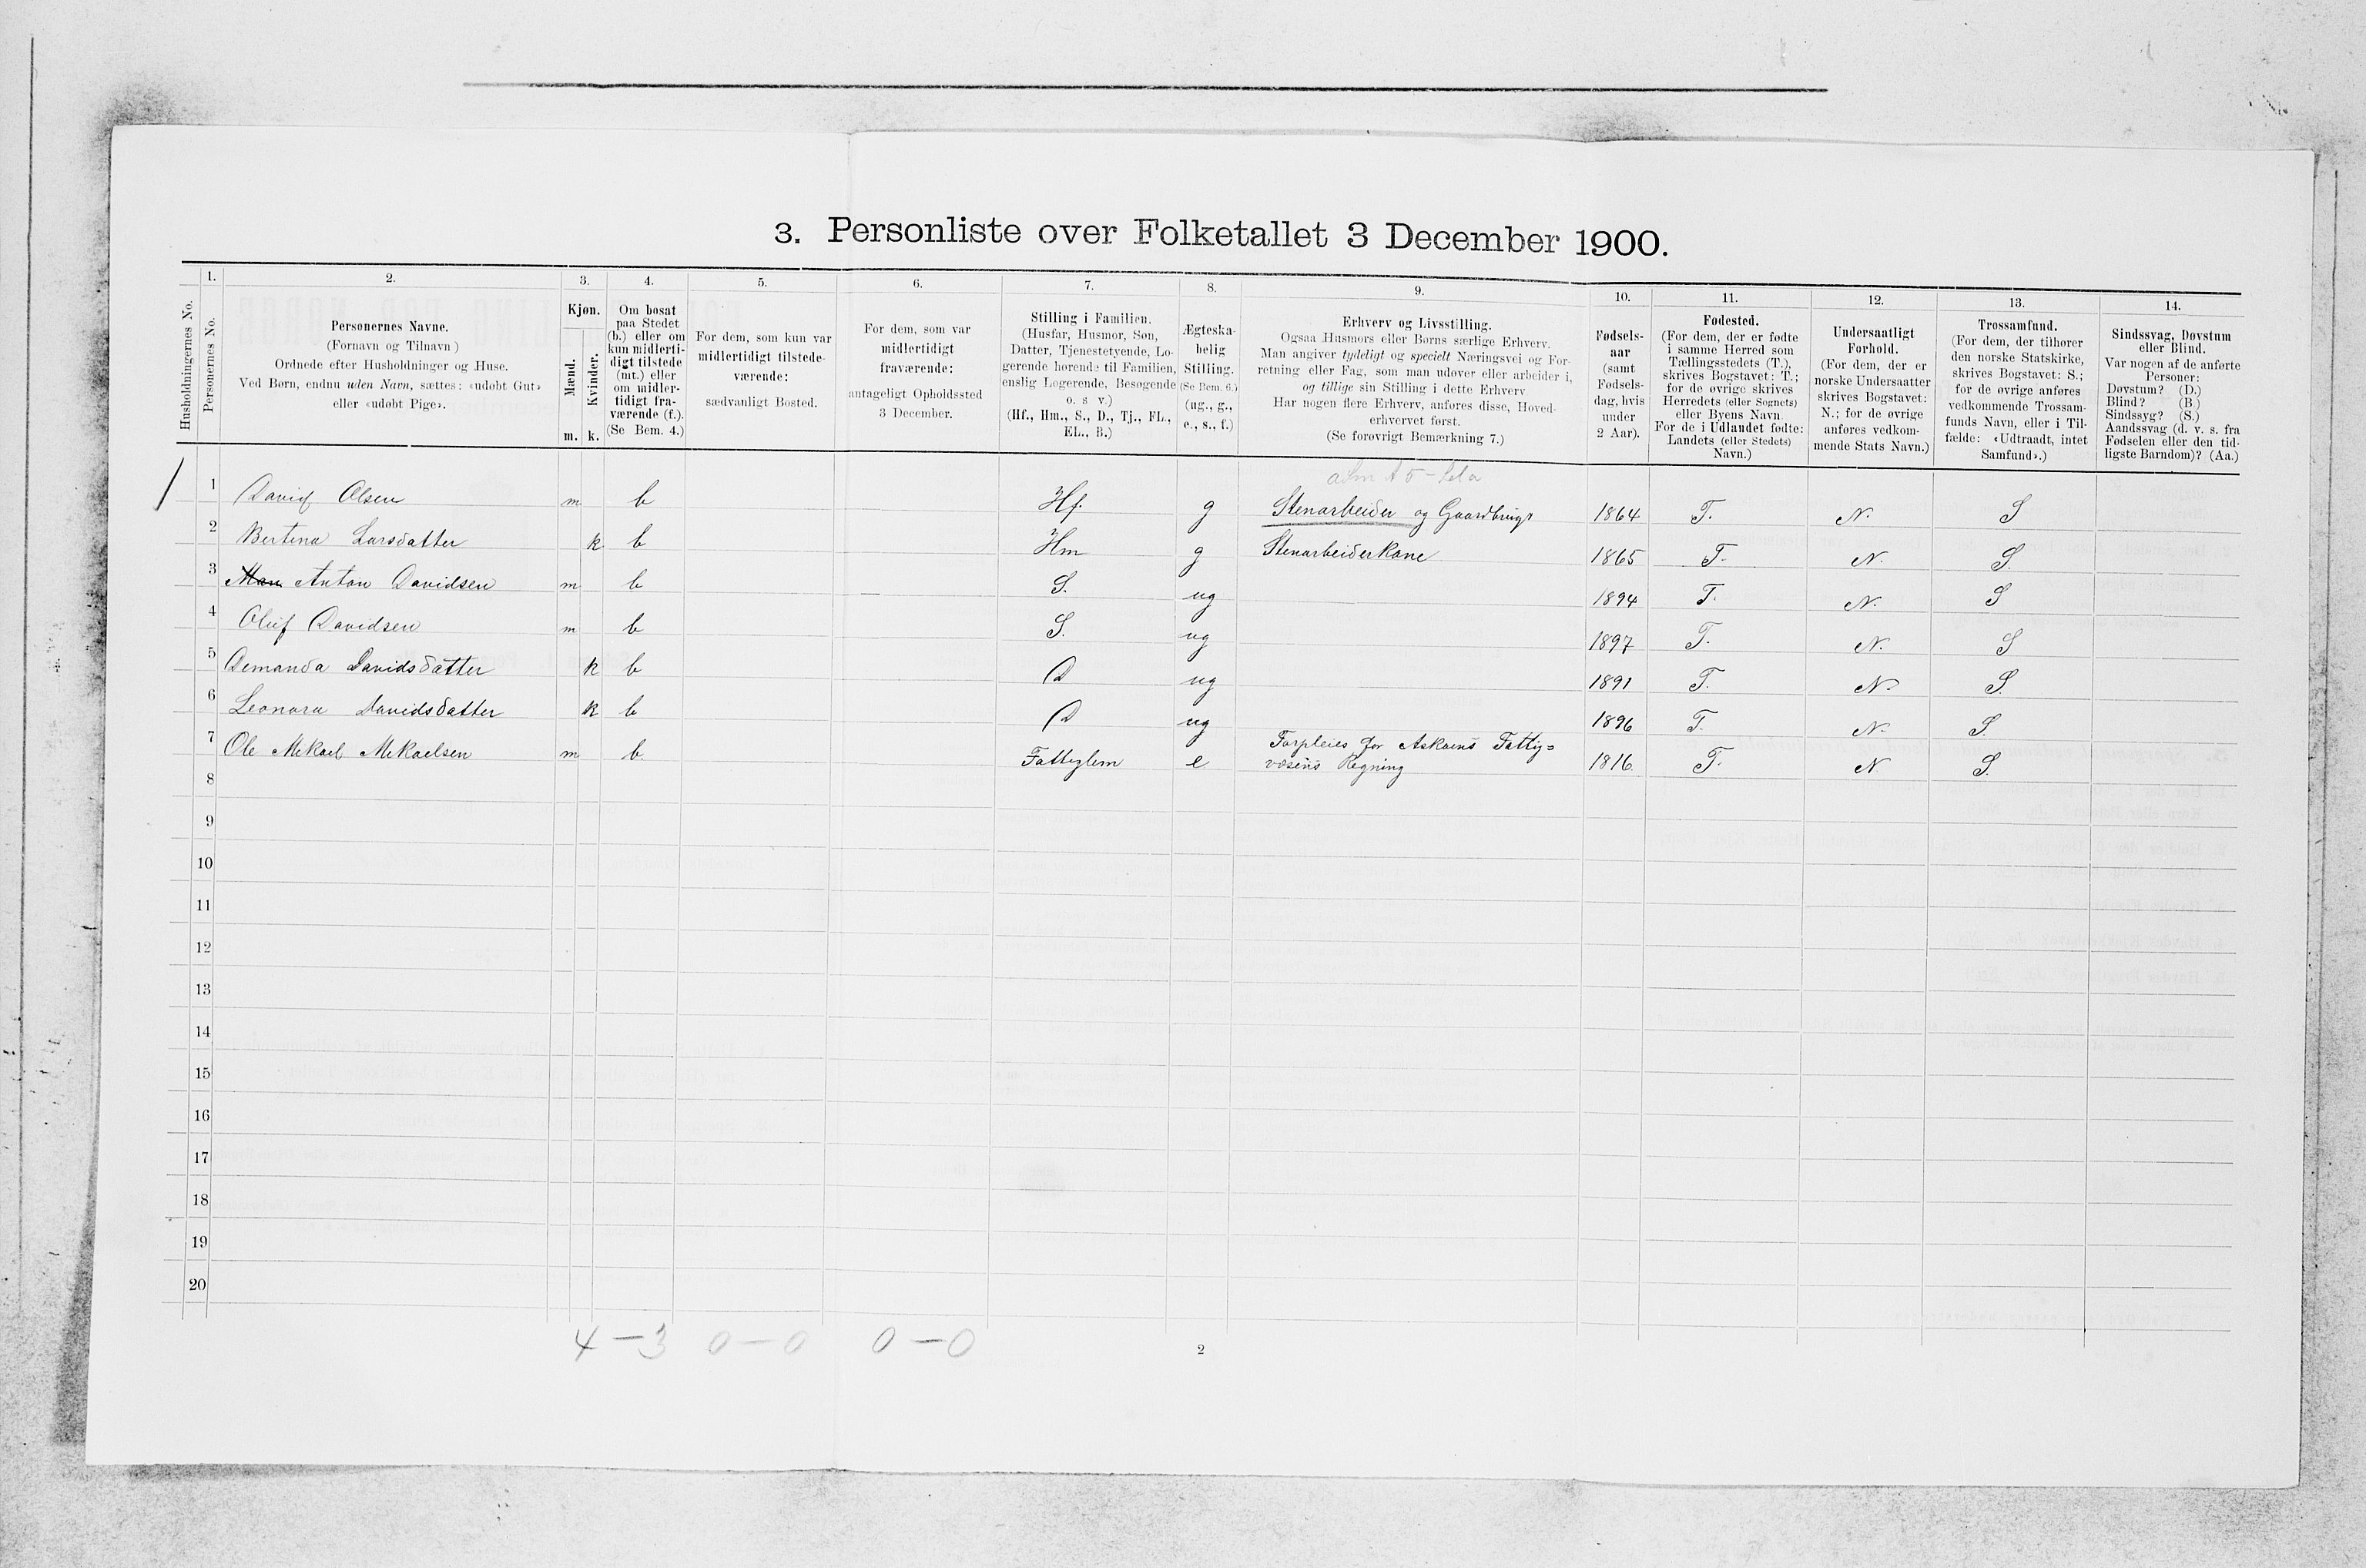 3. Personliste over Folketallet 3 December 1900.
1. 2. 3. 4. 5. 6. 7. 8. 9. 10. 11. 12. 13. 14.
Husholdningernes No.
Personernes No.
Personernes Navne.
(Fornavn og Tilnavn )
Ordnede efter Husholdninger og Huse.
Ved Børn, endnu uden Navn, sættes: «udøbt Gut»
eller «udøbt Pige».
Kjøn.
Mænd.
Kvinder.
m. k.
Om bosat
paa Stedet
(b.) eller om
kun midlerti-
digt tilstede
(mt.) eller
om midler-
tidigt fra-
værende (f.).
(Se Bem. 4.)
For dem, som kun var
midlertidigt tilstede-
værende:
sædvanligt Bosted.
For dem, som var
midlertidigt
fraværende:
antageligt Opholdssted
3 December.
Stilling i Familien.
(Husfar, Husmor, Søn,
Datter, Tjenestetyende, Lo-
gerende hørende til Familien,
enslig Logerende, Besøgende
o. s v.)
(Hf., Hm., S., D., Tj., FL.,
EL., B.)
Ægteska-
belig
Stilling.
(Se Bem. 6.)
(ug., g.,
e., s., f.)
Erhverv og Livsstilling.
Ogsaa Husmors eller Børns særlige Erhverv.
Man angiver tydeligt og specielt Næringsvei og For-
retning eller Fag, som man udøver eller arbeider i,
og tillige sin Stilling i dette Erhverv
Har nogen flere Erhverv, anføres disse, Hoved-
erhvervet først.
(Se forøvrigt Bemærkning 7.)
Fødsels-
aar
(samt
Fødsels-
dag, hvis
under
2 Aar).
Fødested.
(For dem, der er fødte
i samme Herred som
Tællingsstedets (T.),
skrives Bogstavet: T.;
for de øvrige skrives
Herredets (eller Sognets)
eller Byens Navn
For de i Udlandet fødte:
Landets (eller Stedets)
Navn.)
Undersaatligt
Forhold.
(For dem, der er
norske Undersaatter
skrives Bogstavet:
N.; for de øvrige
anføres vedkom-
mende Stats Navn.)
Trossamfund.
(For dem, der tilhører
den norske Statskirke,
skrives Bogstavet: S.;
for de øvrige anføres
vedkommende Trossam-
funds Navn, eller i Til-
fælde: «Udtraadt, intet
Samfund».)
Sindssvag, Døvstum
eller Blind.
Var nogen af de anførte
Personer:
Døvstum? (D.)
Blind? (B.)
Sindssyg? (S.)
Aandssvag (d. v. s. fra
Fødselen eller den tid-
ligste Barndom)? (Aa.)
1 David Olsen m b Hf. g Stenarbeider og Gaardbrug 1864 T. N. S
2 Bertina Larsdatter k b Hm g Stenarbeiderkone 1865 T. N. S.
3 Anton Davidsen m b S. ug 1894 T. N. S
4 Oluf Davidsen m b S. ug 1897 T. N. S
5 Demanda Davidsdatter k b D ug 1891 T. N. S.
6 Leonora Davidsdatter k b D ug 1896 T. N. S.
7 Ole Mikael Mikaelsen m b Fattiglem e Forpleies for Askøens Fattig=
væsens Regning 1816 T. N. S.
8
9
10
11
12
13
14
15
16
17
18
19
20
4 – 3 0 – 0 0 – 0
2